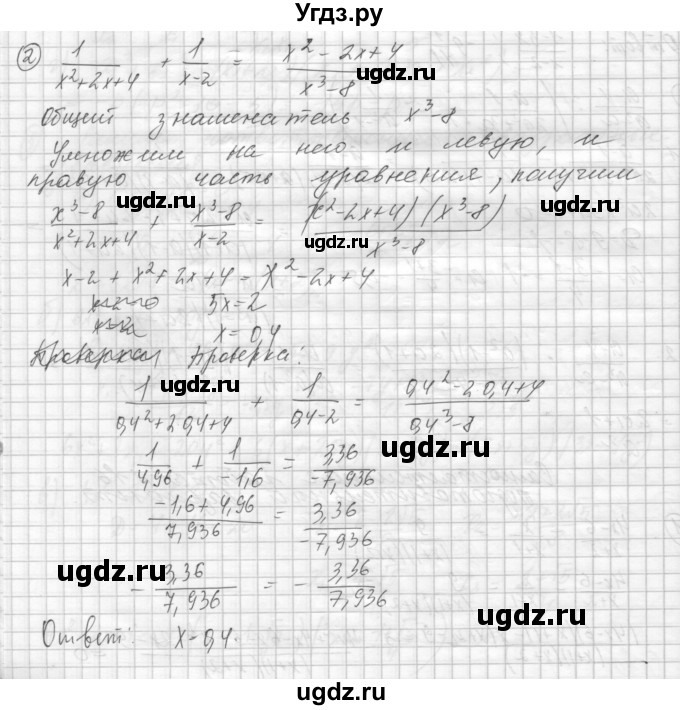 Угдз.ру
② 1/(x²+2x+4) + 1/(x-2) = (x²-2x+4)/(x³-8)
ugdz.ru ugdz.ru
Общий знаменатель x³-8
Умножим на него и левую, и
правую часть уравнения, получим
ugdz.ru ugdz.ru
(x³-8)/(x²+2x+4) + (x³-8)/(x-2) = (x²-2x+4)(x³-8)/(x³-8)
x-2 + x²+2x+4 = x²-2x+4
5x=2
ugdz.ru
x=0,4
Проверка:
ugdz.ru
1/(0,4²+2 0,4+4) + 1/(0,4-2) = (0,4²-2 0,4+4)/(0,4³-8)
ugdz.ru
1/4,96 + 1/-1,6 = 3,36/-7,936
ugdz.ru
(-1,6+4,96)/7,936 = 3,36/-7,936
ugdz.ru ugdz.ru
- 3,36/7,936 = - 3,36/7,936
Ответ: x=0,4.
ugdz.ru
ugdz.ru